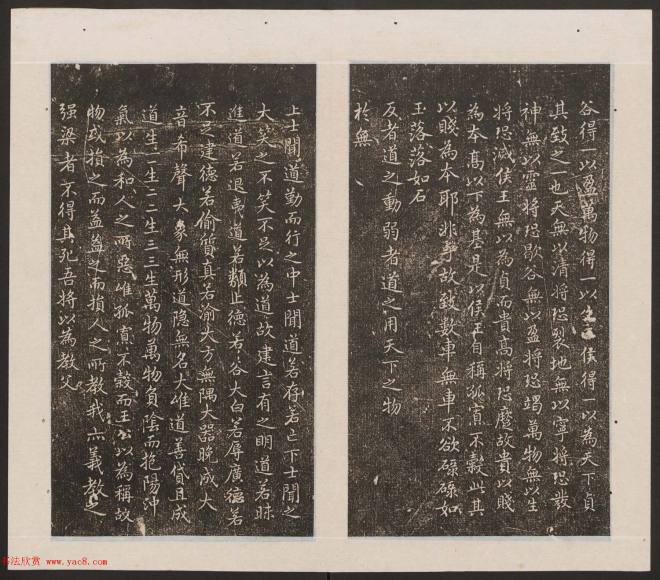 谷得一以盈萬物得一以生王侯得一以為天下貞
其致之一也天無以清將恐裂地無以寧將恐發
神無以靈將恐歇谷無以盈將恐竭萬物無以生
將恐滅侯王無以為貞而貴高將恐蹷故貴以賤
為本高以下為基是以侯王自稱孤寡不轂此其
以賤為本耶非乎故致數車無車不欲碌碌如
玉落落如石
反者道之動弱者道之用天下之物
於無
上士聞道勤而行之中士聞道若存若亡下士聞之
大笑之不笑不足以為道故建言有之明道若昧
進道若退夷道若類上德若谷大白若辱廣德若
不足建德若偷質真若渝大方無隅大器晚成大
音希聲大象無形道隱無名夫唯道善貸且成
道生一一生二二生三三生萬物萬物負陰而抱陽沖
氣以為和人之所惡唯孤寡不轂而王公以為稱故
物或損之而益益之而損人之所教我亦義教之
強梁者不得其死吾將以為教父
书法欣赏 www.yac8.com